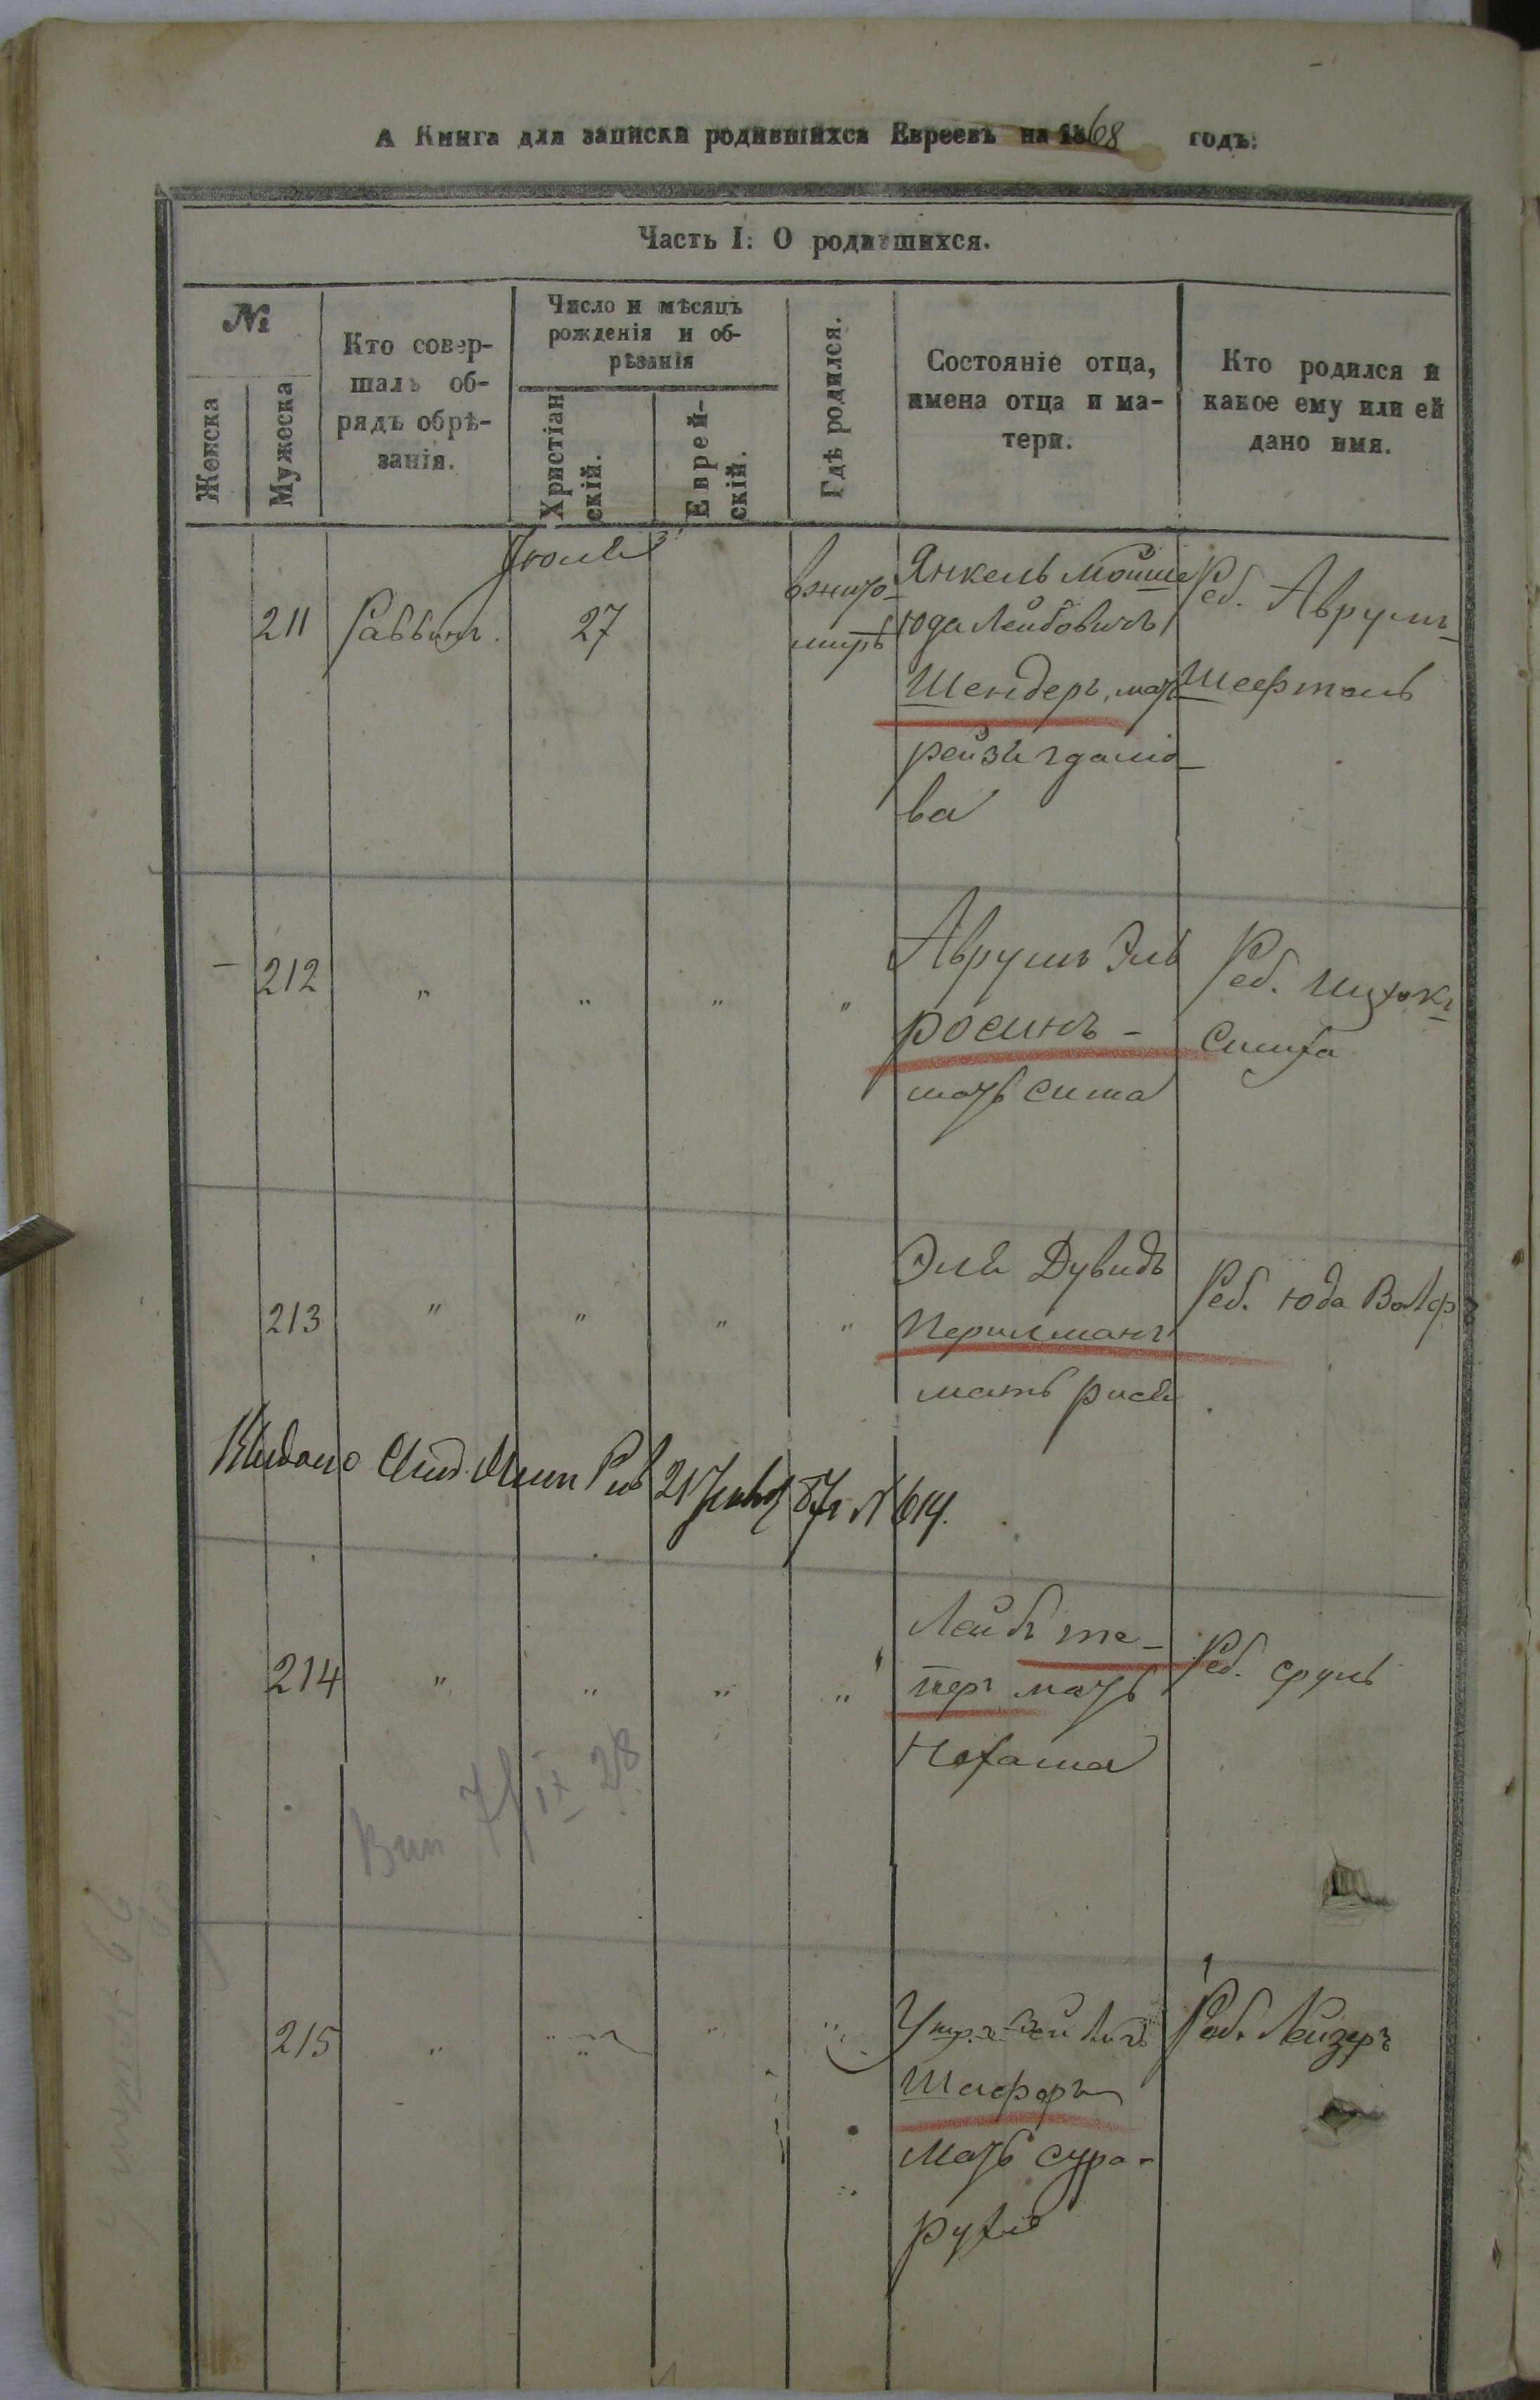 А Книга для записки родившихся Евреевъ на 1868 годъ:
Часть I: О родившихся.
№
Женска
Мужеска
Кто совер-
шалъ об-
рядъ обрѣ-
занія.
Число и мѣсяцъ
рожденія и об-
рѣзанія
Христіан
скій.
Еврей-
скій.
Гдѣ родился.
Состояніе отца,
имена отца и ма-
тери.
Кто родился и
какое ему или ей
дано имя.
Іюля
211
Раввинъ.
27
вжито-
мирѣ
Янкель Мойше
Юда Лейбовичъ
Шендеръ, мать
рейзи
ва
Реб. Аврумъ-
Шефтель
212
"
"
"
"
Аврумъ Эль
росинъ -
мать сима
Реб. Ицхокъ
Симха
213
"
"
"
"
Эли Дувидъ
Перилманъ
мать рися
Реб. Юда Волфъ
Выдано 21 87г № 614.
214
"
"
"
"
Лейбъ те-
перъ мать
Нехама
Реб. сруль
Вип 7/IX 28
215
"
"
"
"
Шафъръ
Мать сура-
рухля
Реб. Лейзеръ